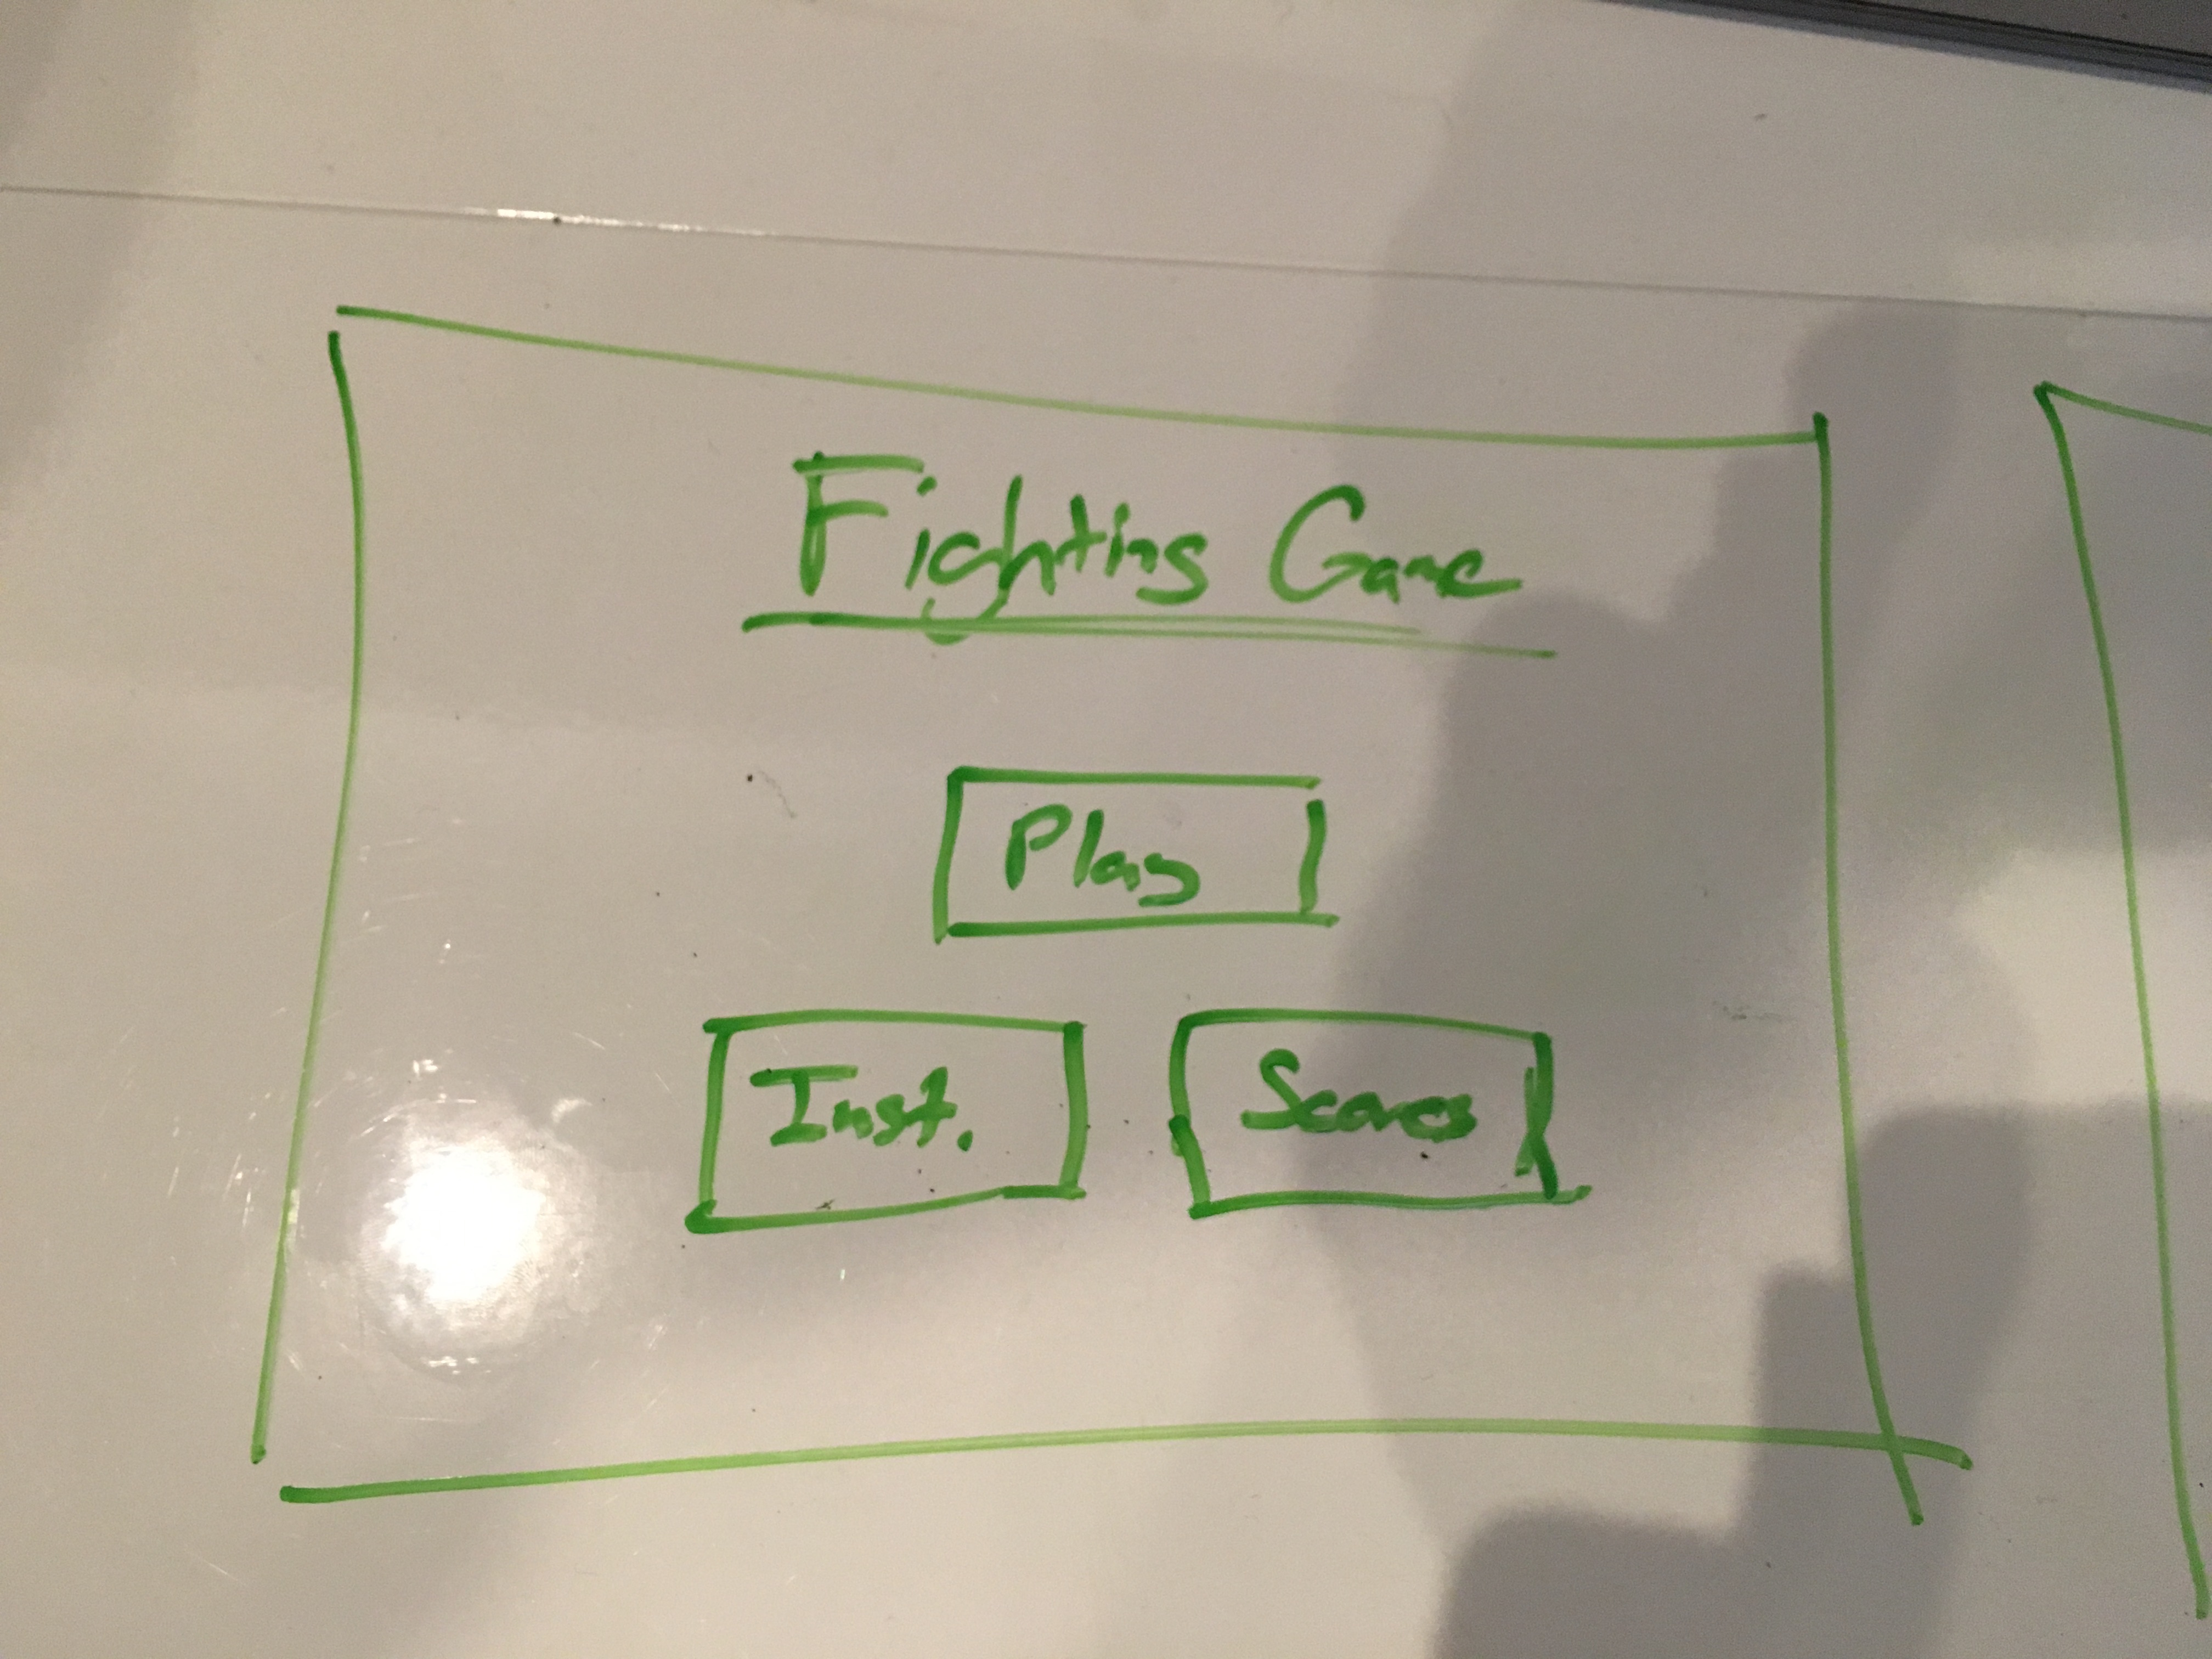 Fighting Game
Play
Inst.
Scores